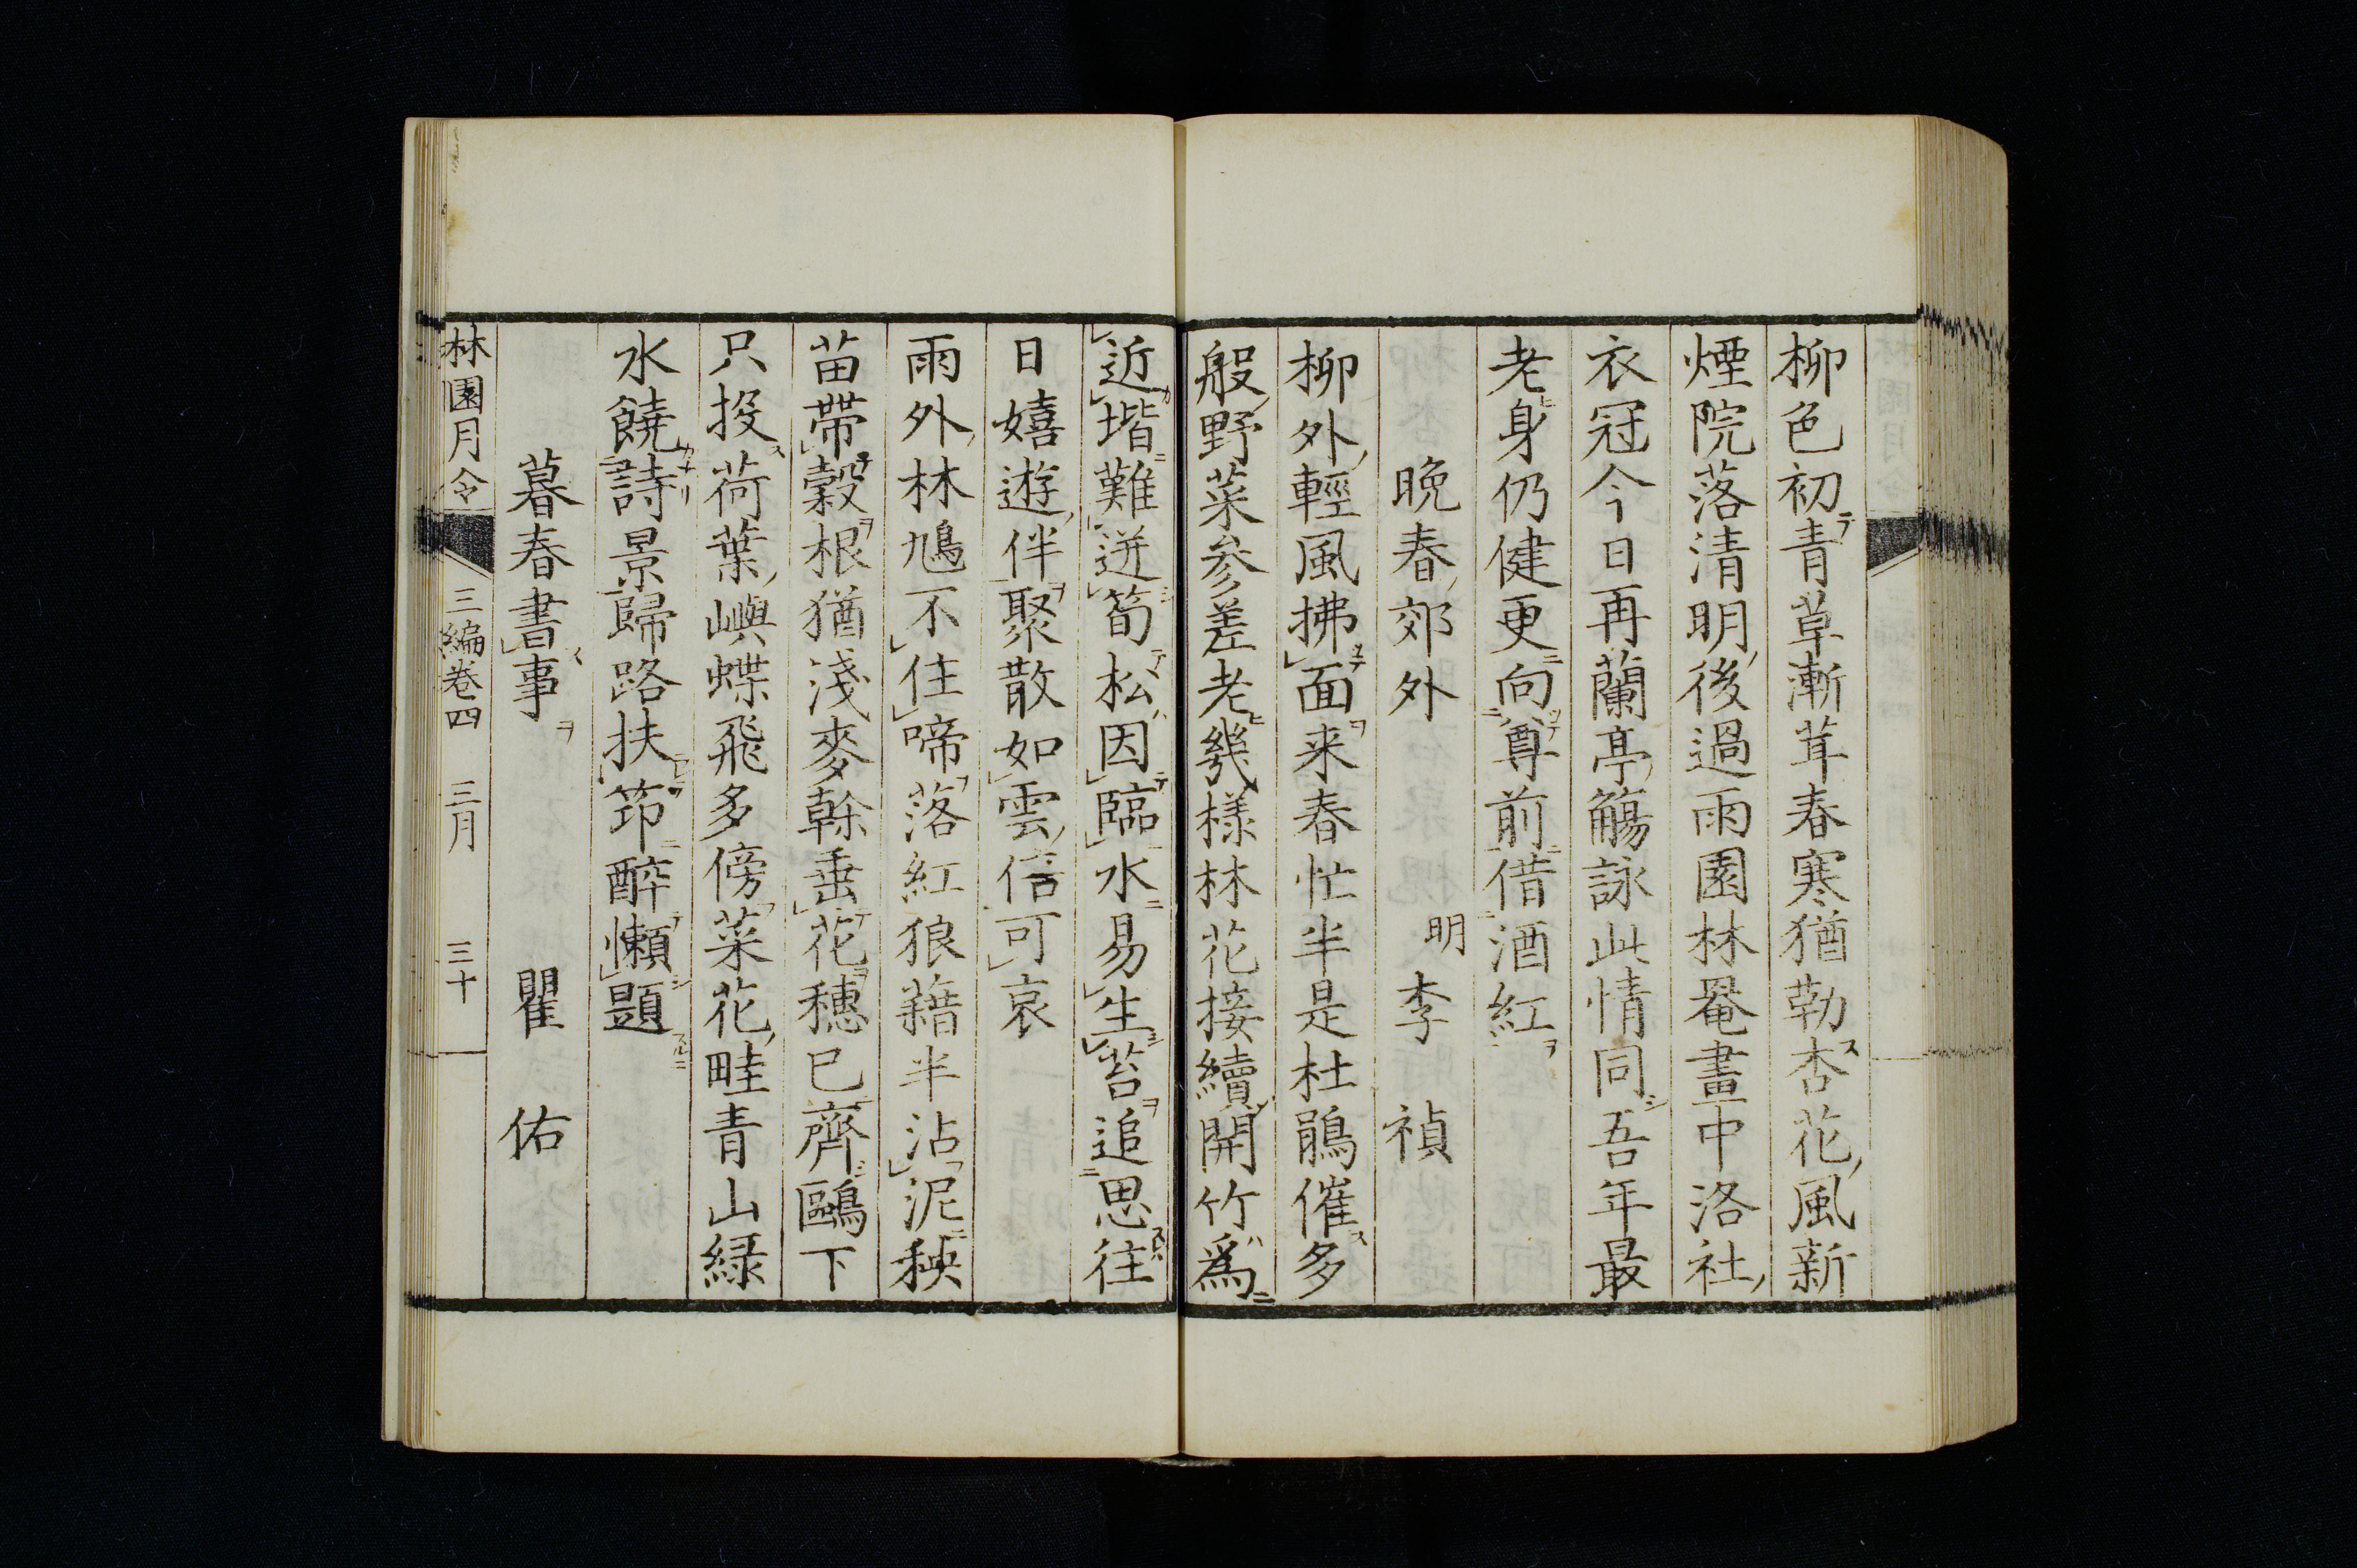 柳色初青草漸茸春寒猶勒杏花風新
煙院落清明後過雨園林罨畫中洛社
衣冠今日再蘭亭觴詠此情同吾年最
老身仍健更向尊前借酒紅
晩春郊外 明 李 禎
柳外輕風拂面来春忙半是杜鵑催多
般野菜参差老幾様林花接續開竹爲
近堦難迸筍松因臨水易生苔追思往
日嬉遊伴聚散如雲信可哀
雨外林鳩不住啼落紅狼籍半沾泥秧
苗帶穀根猶淺麥幹垂花穗已齊鷗下
只投荷葉嶼蝶飛多傍菜花畦青山緑
水饒詩景歸路扶筇醉懶題
暮春書事 瞿 佑
林園月令 三編卷四 三月 三十